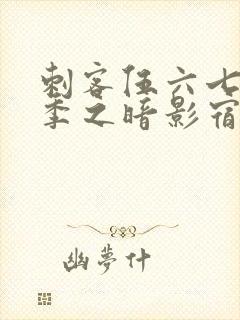 刺客伍六七
季之暗影宿
幽夢什